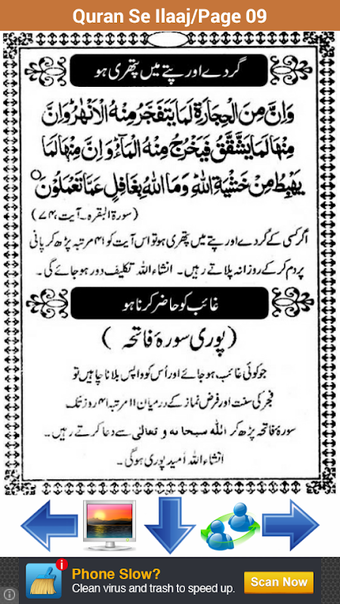 Quran Se Ilaaj/Page 09
گردے اور پتے میں پتھری ہو
وَاِنَّ مِنَ الْحِجَارَةِ لَمَا يَتَفَجَّرُ مِنْهُ الْاَنْهٰرُ وَاِنَّ
مِنْهَا لَمَا يَشَّقَّقُ فَيَخْرُجُ مِنْهُ الْمَآءُ وَاِنَّ مِنْهَا لَمَا
يَهْبِطُ مِنْ خَشْيَةِ اللّٰهِ وَمَا اللّٰهُ بِغَافِلٍ عَمَّا تَعْمَلُوْنَ
(سورۃ البقرہ۔آیت۷۴)
اگر کسی کے گردے اور پتے میں پتھری ہو تو اس آیت کو ۴۱ مرتبہ پڑھ کر پانی
پر دم کر کے روزانہ پلاتے رہیں۔ انشاء اللہ تکلیف دور ہو جائے گی۔
غائب کو حاضر کرنا ہو
(پوری سورۂ فاتحہ)
جو کوئی غائب ہو جائے اور اُس کو واپس بلانا چاہیں تو
فجر کی سنت اور فرض نماز کے درمیان ۱۱ مرتبہ ۴۱ روز تک
سورۂ فاتحہ پڑھ کر اللہ سبحانہ و تعالٰی سے دعا کرتے رہیں۔
انشاء اللہ اُمید پوری ہوگی۔
Phone Slow?
Clean virus and trash to speed up.
Scan Now